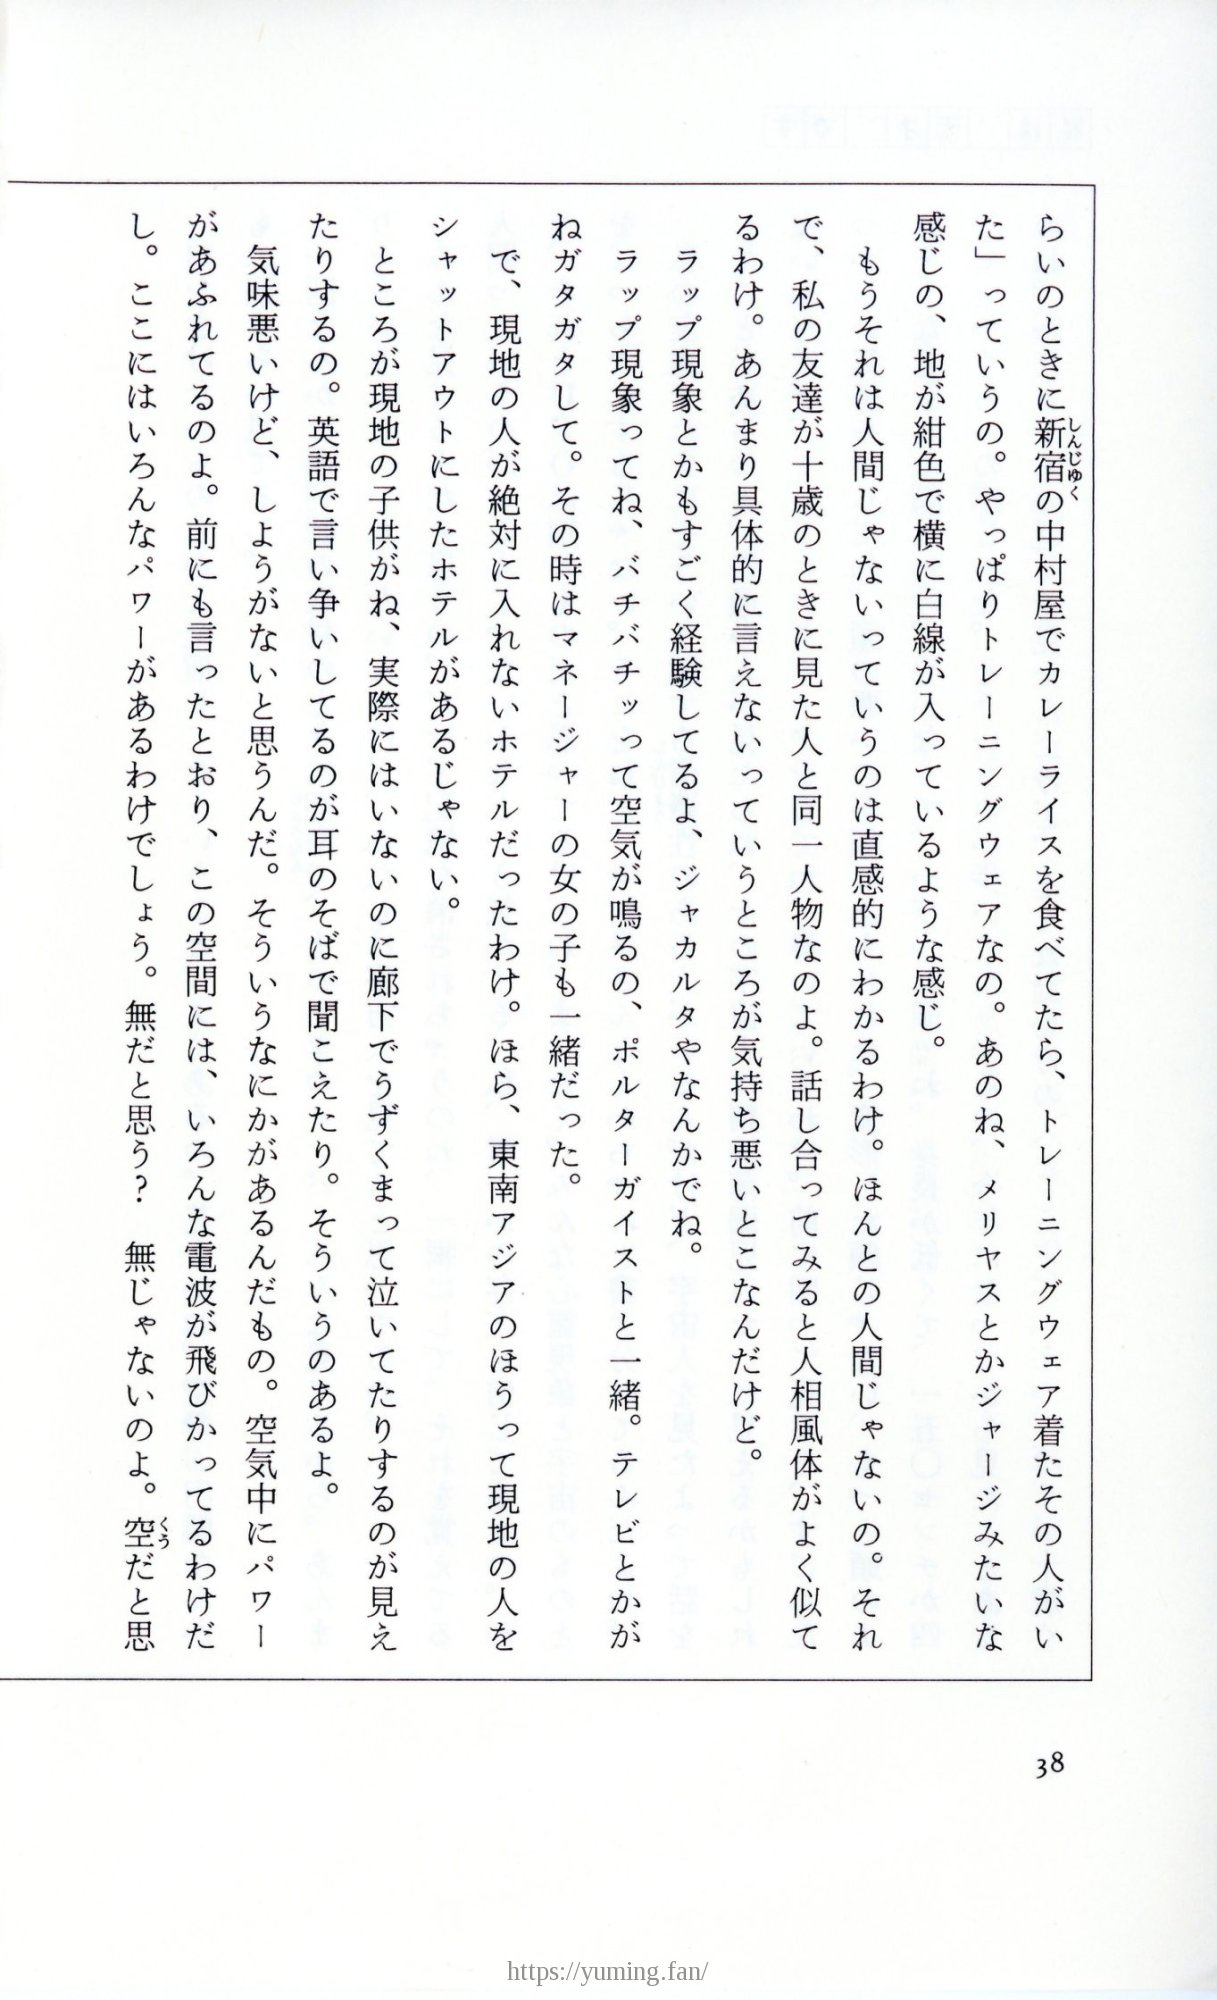 らいのときに新宿の中村屋でカレーライスを食べてたら、トレーニングウェア着たその人がい
た」っていうの。やっぱりトレーニングウェアなの。あのね、メリヤスとかジャージみたいな
感じの、地が紺色で横に白線が入っているような感じ。
もうそれは人間じゃないっていうのは直感的にわかるわけ。ほんとの人間じゃないの。それ
で、私の友達が十歳のときに見た人と同一人物なのよ。話し合ってみると人相風体がよく似て
るわけ。あんまり具体的に言えないっていうところが気持ち悪いとこなんだけど。
ラップ現象とかもすごく経験してるよ、ジャカルタやなんかでね。
ラップ現象ってね、バチバチッって空気が鳴るの、ポルターガイストと一緒。テレビとかが
ねガタガタして。その時はマネージャーの女の子も一緒だった。
で、現地の人が絶対に入れないホテルだったわけ。ほら、東南アジアのほうって現地の人を
シャットアウトにしたホテルがあるじゃない。
ところが現地の子供がね、実際にはいないのに廊下でうずくまって泣いてたりするのが見え
たりするの。英語で言い争いしてるのが耳のそばで聞こえたり。そういうのあるよ。
気味悪いけど、しようがないと思うんだ。そういうなにかがあるんだもの。空気中にパワー
があふれてるのよ。前にも言ったとおり、この空間には、いろんな電波が飛びかってるわけだ
し。ここにはいろんなパワーがあるわけでしょう。無だと思う？　無じゃないのよ。空だと思
しんじゅく
くう
38
https://yuming.fan/